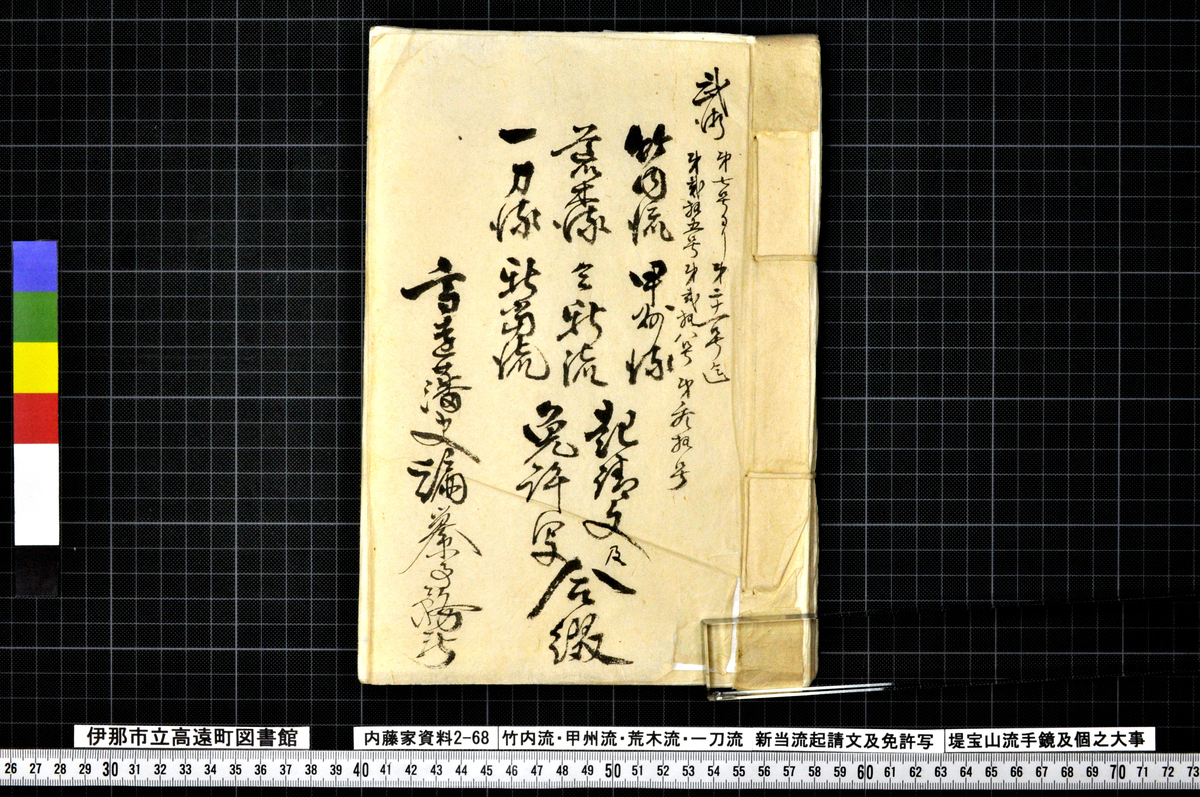 武術
第七号より第二十一号迄
第弐拾五号第弐拾八号第参拾号
竹内流 甲州流
荒木流 心新流
一刀流 新当流
起請文及
免許写
合綴
高遠藩史編纂事務所
伊那市立高遠町図書館
内藤家資料2-68
竹内流・甲州流・荒木流・一刀流 新当流起請文及免許写
堤宝山流手鏡及個之大事
26 27 28 29 30 31 32 33 34 35 36 37 38 39 40 41 42 43 44 45 46 47 48 49 50 51 52 53 54 55 56 57 58 59 60 61 62 63 64 65 66 67 68 69 70 71 72 73